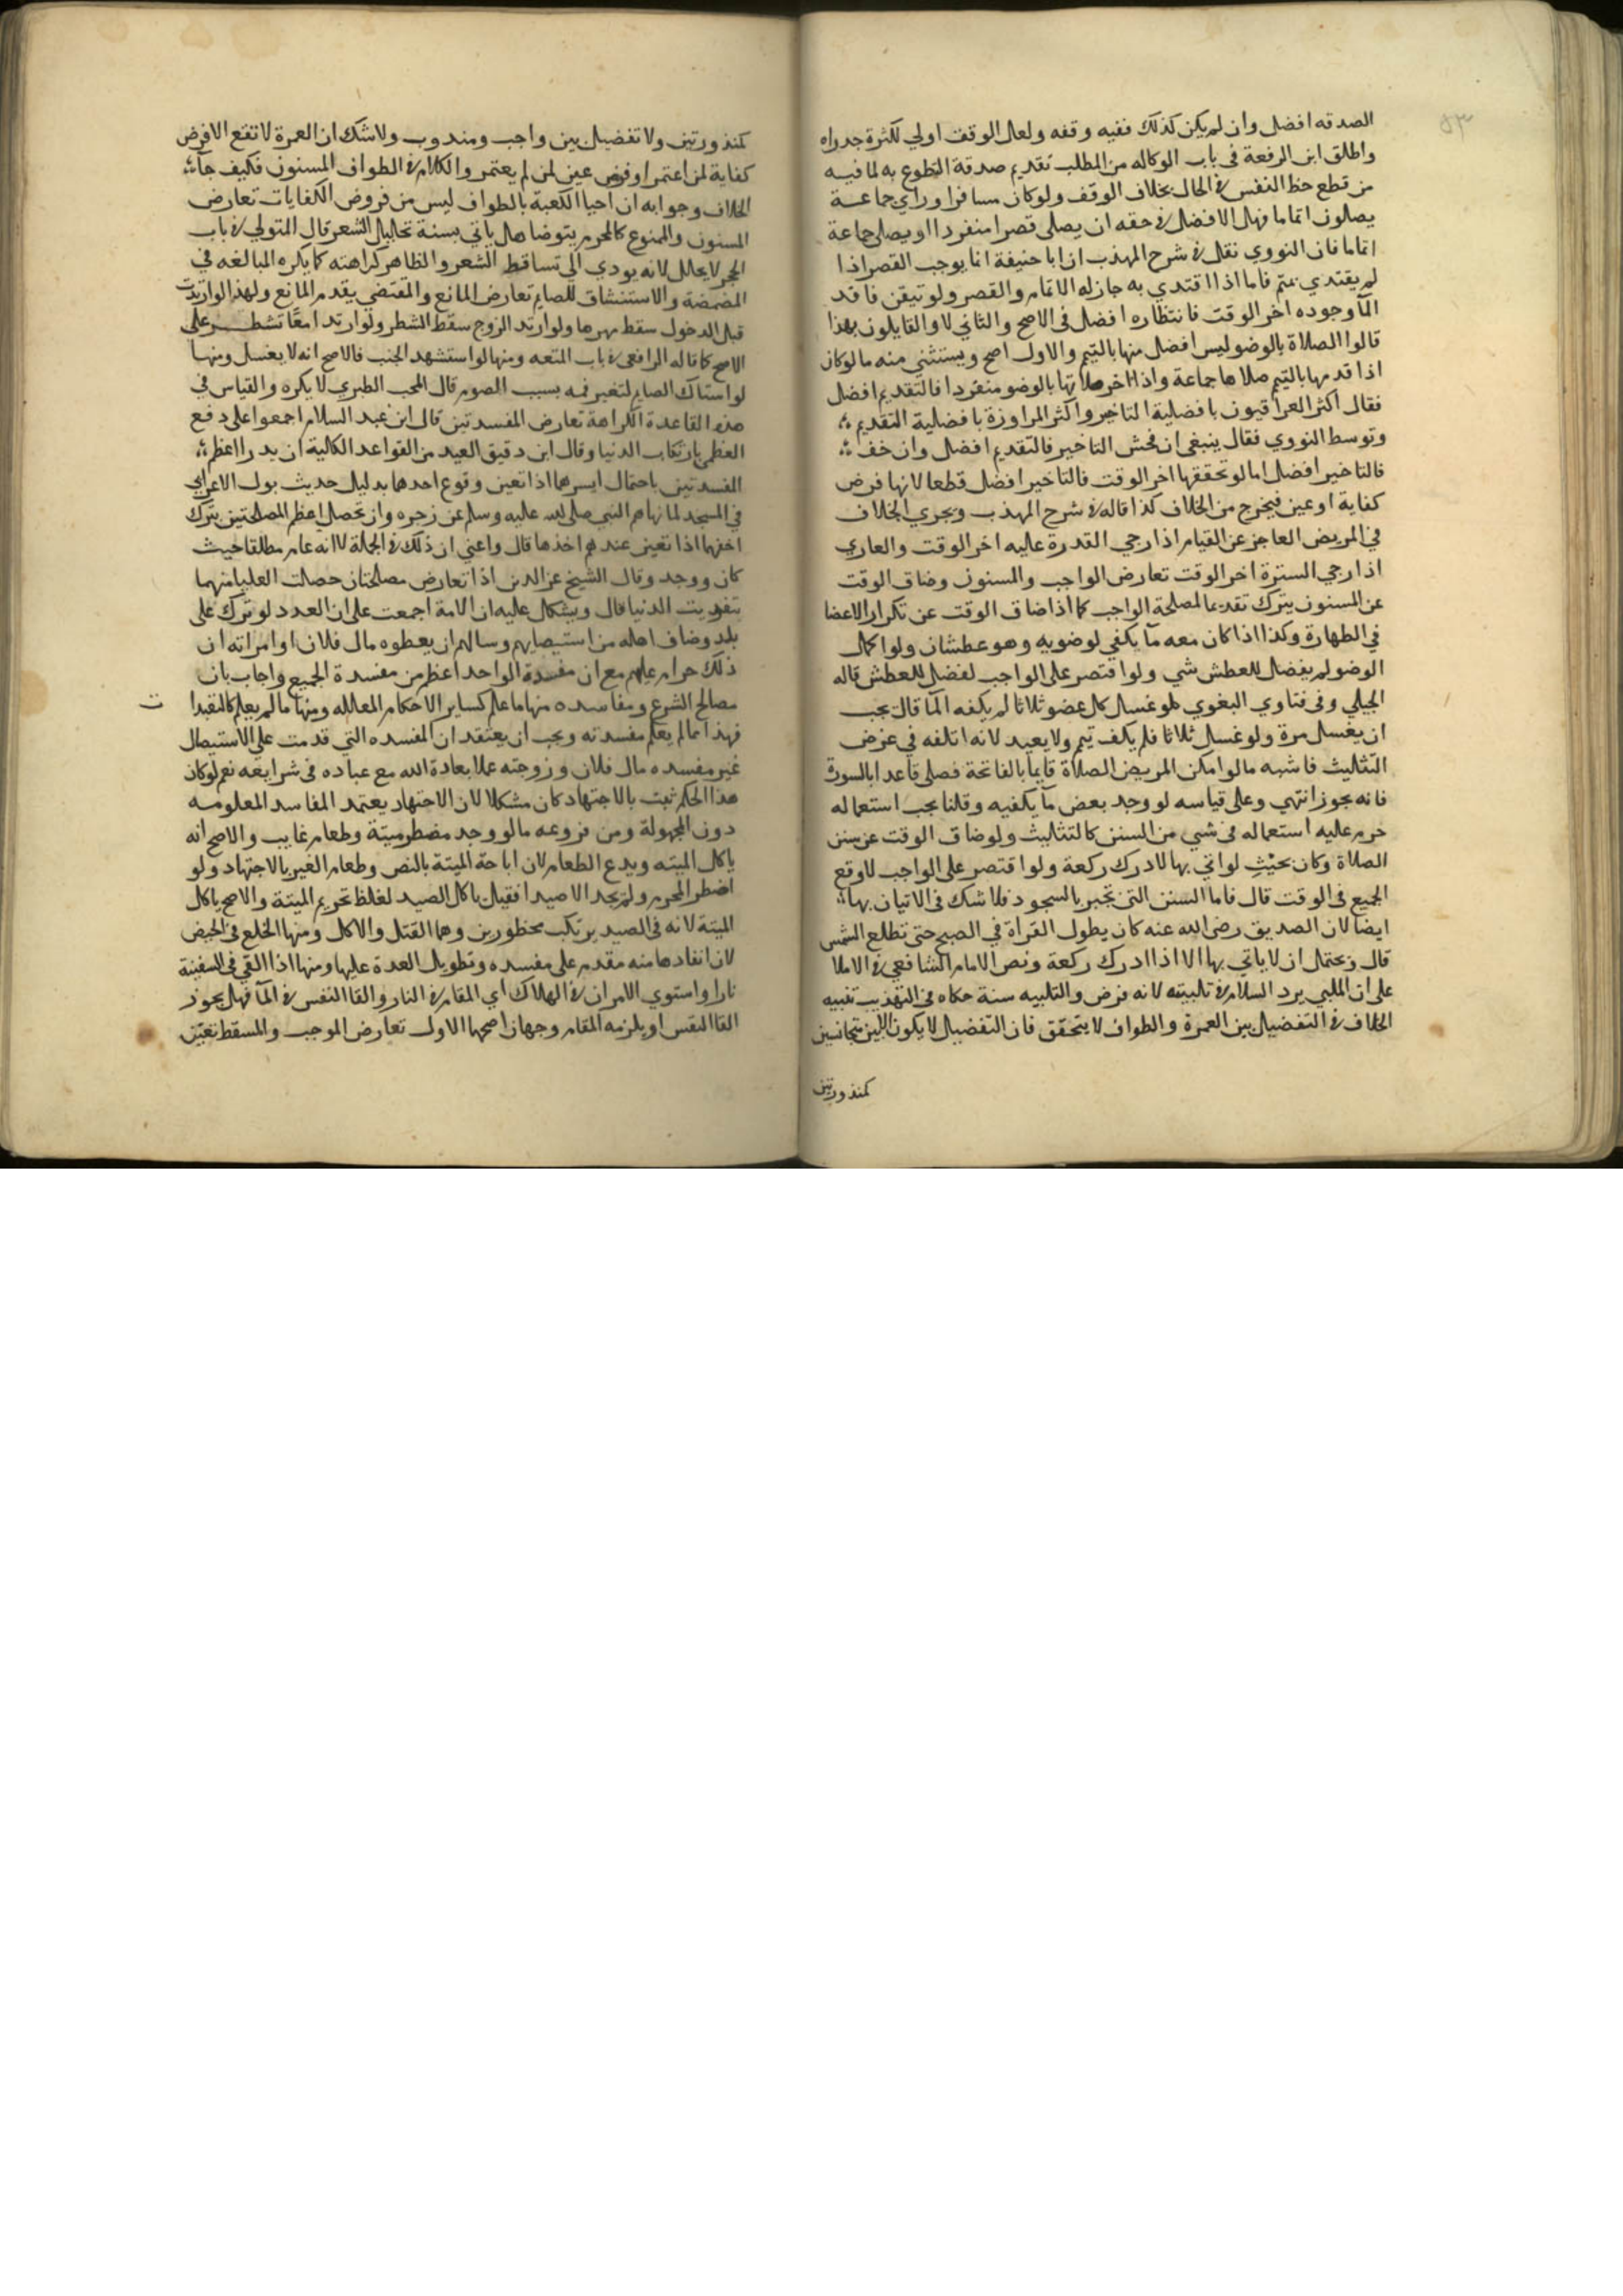 ٥٣
الصدقه افضل وان لم يكن كذلك ففيه وقفه ولعل الوقف اولي لكثرة جدواه
واطلق ابن الرفعة فى باب الوكاله من المطلب تقديم صدقة التطوع به لما فيه
من قطع حظ النفس في الحال بخلاف الوقف ولو كان مسافرا وراي جماعة
يصلون اتماما فهل الافضل في حقه ان يصلي قصرا منفردا او يصلي جماعة
اتماما فان النووي نقل في شرح المهذب ان ابا حنيفة انما يوجب القصر اذا
لم يقتدي بمتم فاما اذا اقتدي به جاز له الاتمام والقصر ولو تيقن فاقد
المآ وجوده اخر الوقت فانتظاره افضل فى الاصح والثاني لا والقايلون بهذا
قالوا الصلاة بالوضو ليس افضل منها بالتيم والاول اصح ويستثني منه ما لو كان
اذا قدمها بالتيم صلاها جماعة واذا اخر صلاتها بالوضو منفردا فالتقديم افضل
فقال اكثر العراقيون بافضلية التاخير واكثر المراوزة بافضلية التقديم
وتوسط النووي فقال ينبغى ان فحش التاخير فالتقديم افضل وان خف
فالتاخير افضل اما لو تحققها اخر الوقت فالتاخير افضل قطعا لانها فرض
كفاية او عين فيخرج من الخلاف كذا قاله في شرح المهذب ويجري الخلاف
في المريض العاجز عن القيام اذا رجي القدرة عليه اخر الوقت والعاري
اذا رجي السترة اخر الوقت تعارض الواجب والمسنون وضاق الوقت
عن المسنون يترك تقديما لمصلحة الواجب كما اذا ضاق الوقت عن تكرار الاعضا
في الطهارة وكذا اذا كان معه مآ يكفي لوضويه وهو عطشان ولو اكمل
الوضو لم يفضل للعطش شي ولو اقتصر على الواجب لفضل للعطش قاله
الجيلي وفى فتاوي البغوي لو غسل كل عضو ثلاثا لم يكفه المآ قال يجب
ان يغسل مرة ولو غسل ثلاثا فلم يكف تيم ولا يعيد لانه اتلفه فى غرض
التثليث فاشبه ما لو امكن المريض الصلاة قايما بالفاتحة فصلى قاعدا بالسورة
فانه يجوز انتهي وعلى قياسه لو وجد بعض مآ يكفيه وقلنا يجب استعماله
حرم عليه استعماله فى شي من السنن كالتثليث ولو ضاق الوقت عن سنن
الصلاة وكان بحيث لو اتي بها لادرك ركعة ولو اقتصر على الواجب لاوقع
الجميع فى الوقت قال فاما السنن التى تجبر بالسجود فلا شك فى الاتيان بها
ايضا لان الصديق رضي الله عنه كان يطول القراة في الصبح حتى تطلع الشمس
قال ويحتمل ان لا ياتي بها الا اذا ادرك ركعة ونص الامام الشافعي في الاملا
على ان الملبي يرد السلام في تلبيته لانه فرض والتلبيه سنة حكاه فى التهذيب تنبيه
الخلاف في التفضيل بين العمرة والطواف لا يتحقق فان التفضيل لا يكون الا بين متجانسين
كمنذورتين
كمنذورتين ولا تفضيل بين واجب ومندوب ولا شك ان العمرة لا تقع الا فرض
كفاية لمن اعتمر او فرض عين لمن لم يعتمر والكلام في الطواف المسنون فكيف جآ
الخلاف وجوابه ان احيا الكعبة بالطواف ليس من فروض الكفايات تعارض
المسنون والممنوع كالمحرم يتوضا هل ياتي بسنة تخليل الشعر قال المتولي في باب
الحج لا يخلل لانه يودي الى تساقط الشعر والظاهر كراهته كما يكره المبالغه في
المضمضة والاستنشاق للصايم تعارض المانع والمقتضي يقدم المانع ولهذا لو ارتدت
قبل الدخول سقط مهرها ولو ارتد الزوج سقط الشطر ولو ارتدا معا تشطر على
الاصح كما قاله الرافعى في باب المتعه ومنها لو استشهد الجنب فالاصح انه لا يغسل ومنها
لو استاك الصايم لتغير فمه بسبب الصوم قال المحب الطبري لا يكره والقياس في
هذه القاعدة الكراهة تعارض المفسدتين قال ابن عبد السلام اجمعوا على دفع
العظمي بارتكاب الدنيا وقال ابن دقيق العيد من القواعد الكلية ان يدرا اعظم
المفسدتين باحتمال ايسرهما اذا تعين وقوع احدهما بدليل حديث بول الاعرابي
في المسجد لما نهاهم النبي صلى الله عليه وسلم عن زجره وان تحصل اعظم المصلحتين بترك
اخفهما اذا تعين عندهم اخذها قال واعني ان ذلك في الجملة لا انه عام مطلقا حيث
كان ووجد وقال الشيخ عز الدين اذا تعارض مصلحتان حصلت العليا منهما
بتفويت الدنيا قال ويشكل عليه ان الامة اجمعت على ان العدد لو ترك على
بلد وضاف اهله من استيصايهم وسالهم ان يعطوه مال فلان او امراته ان
ذلك حرام عليهم مع ان مفسدة الواحد اعظم من مفسدة الجميع واجاب بان
مصالح الشرع ومفاسده منها ما علم كساير الاحكام المعلله ومنها ما لم يعلم كالتعبدا
ت
فهذا مما لم يعلم مفسدته ويجب ان يعتقد ان المفسده التي قدمت علي الاستيصال
غير مفسده مال فلان وزوجته عملا بعادة الله مع عباده فى شرايعه نعم لو كان
هذا الحكم ثبت بالاجتهاد كان مشكلا لان الاجتهاد يعتمد المفاسد المعلومه
دون المجهولة ومن فروعه ما لو وجد مضطر ميتة وطعام غايب والاصح انه
ياكل الميته ويدع الطعام لان اباحة الميتة بالنص وطعام الغير بالاجتهاد ولو
اضطر المحرم ولم يجد الا صيدا فقيل ياكل الصيد لغلظ تحريم الميتة والاصح ياكل
الميتة لانه فى الصيد يرتكب محظورين وهما القتل والاكل ومنها الخلع فى الحيض
لان انفاذها منه مقدم على مفسده وتطويل العدة عليها ومنها اذا القي فى السفينة
نارا واستوي الامران في الهلاك اي المقام في النار والقا النفس في المآ فهل يجوز
القا النفس او يلزمه المقام وجهان اصحهما الاول تعارض الموجب والمسقط تعين